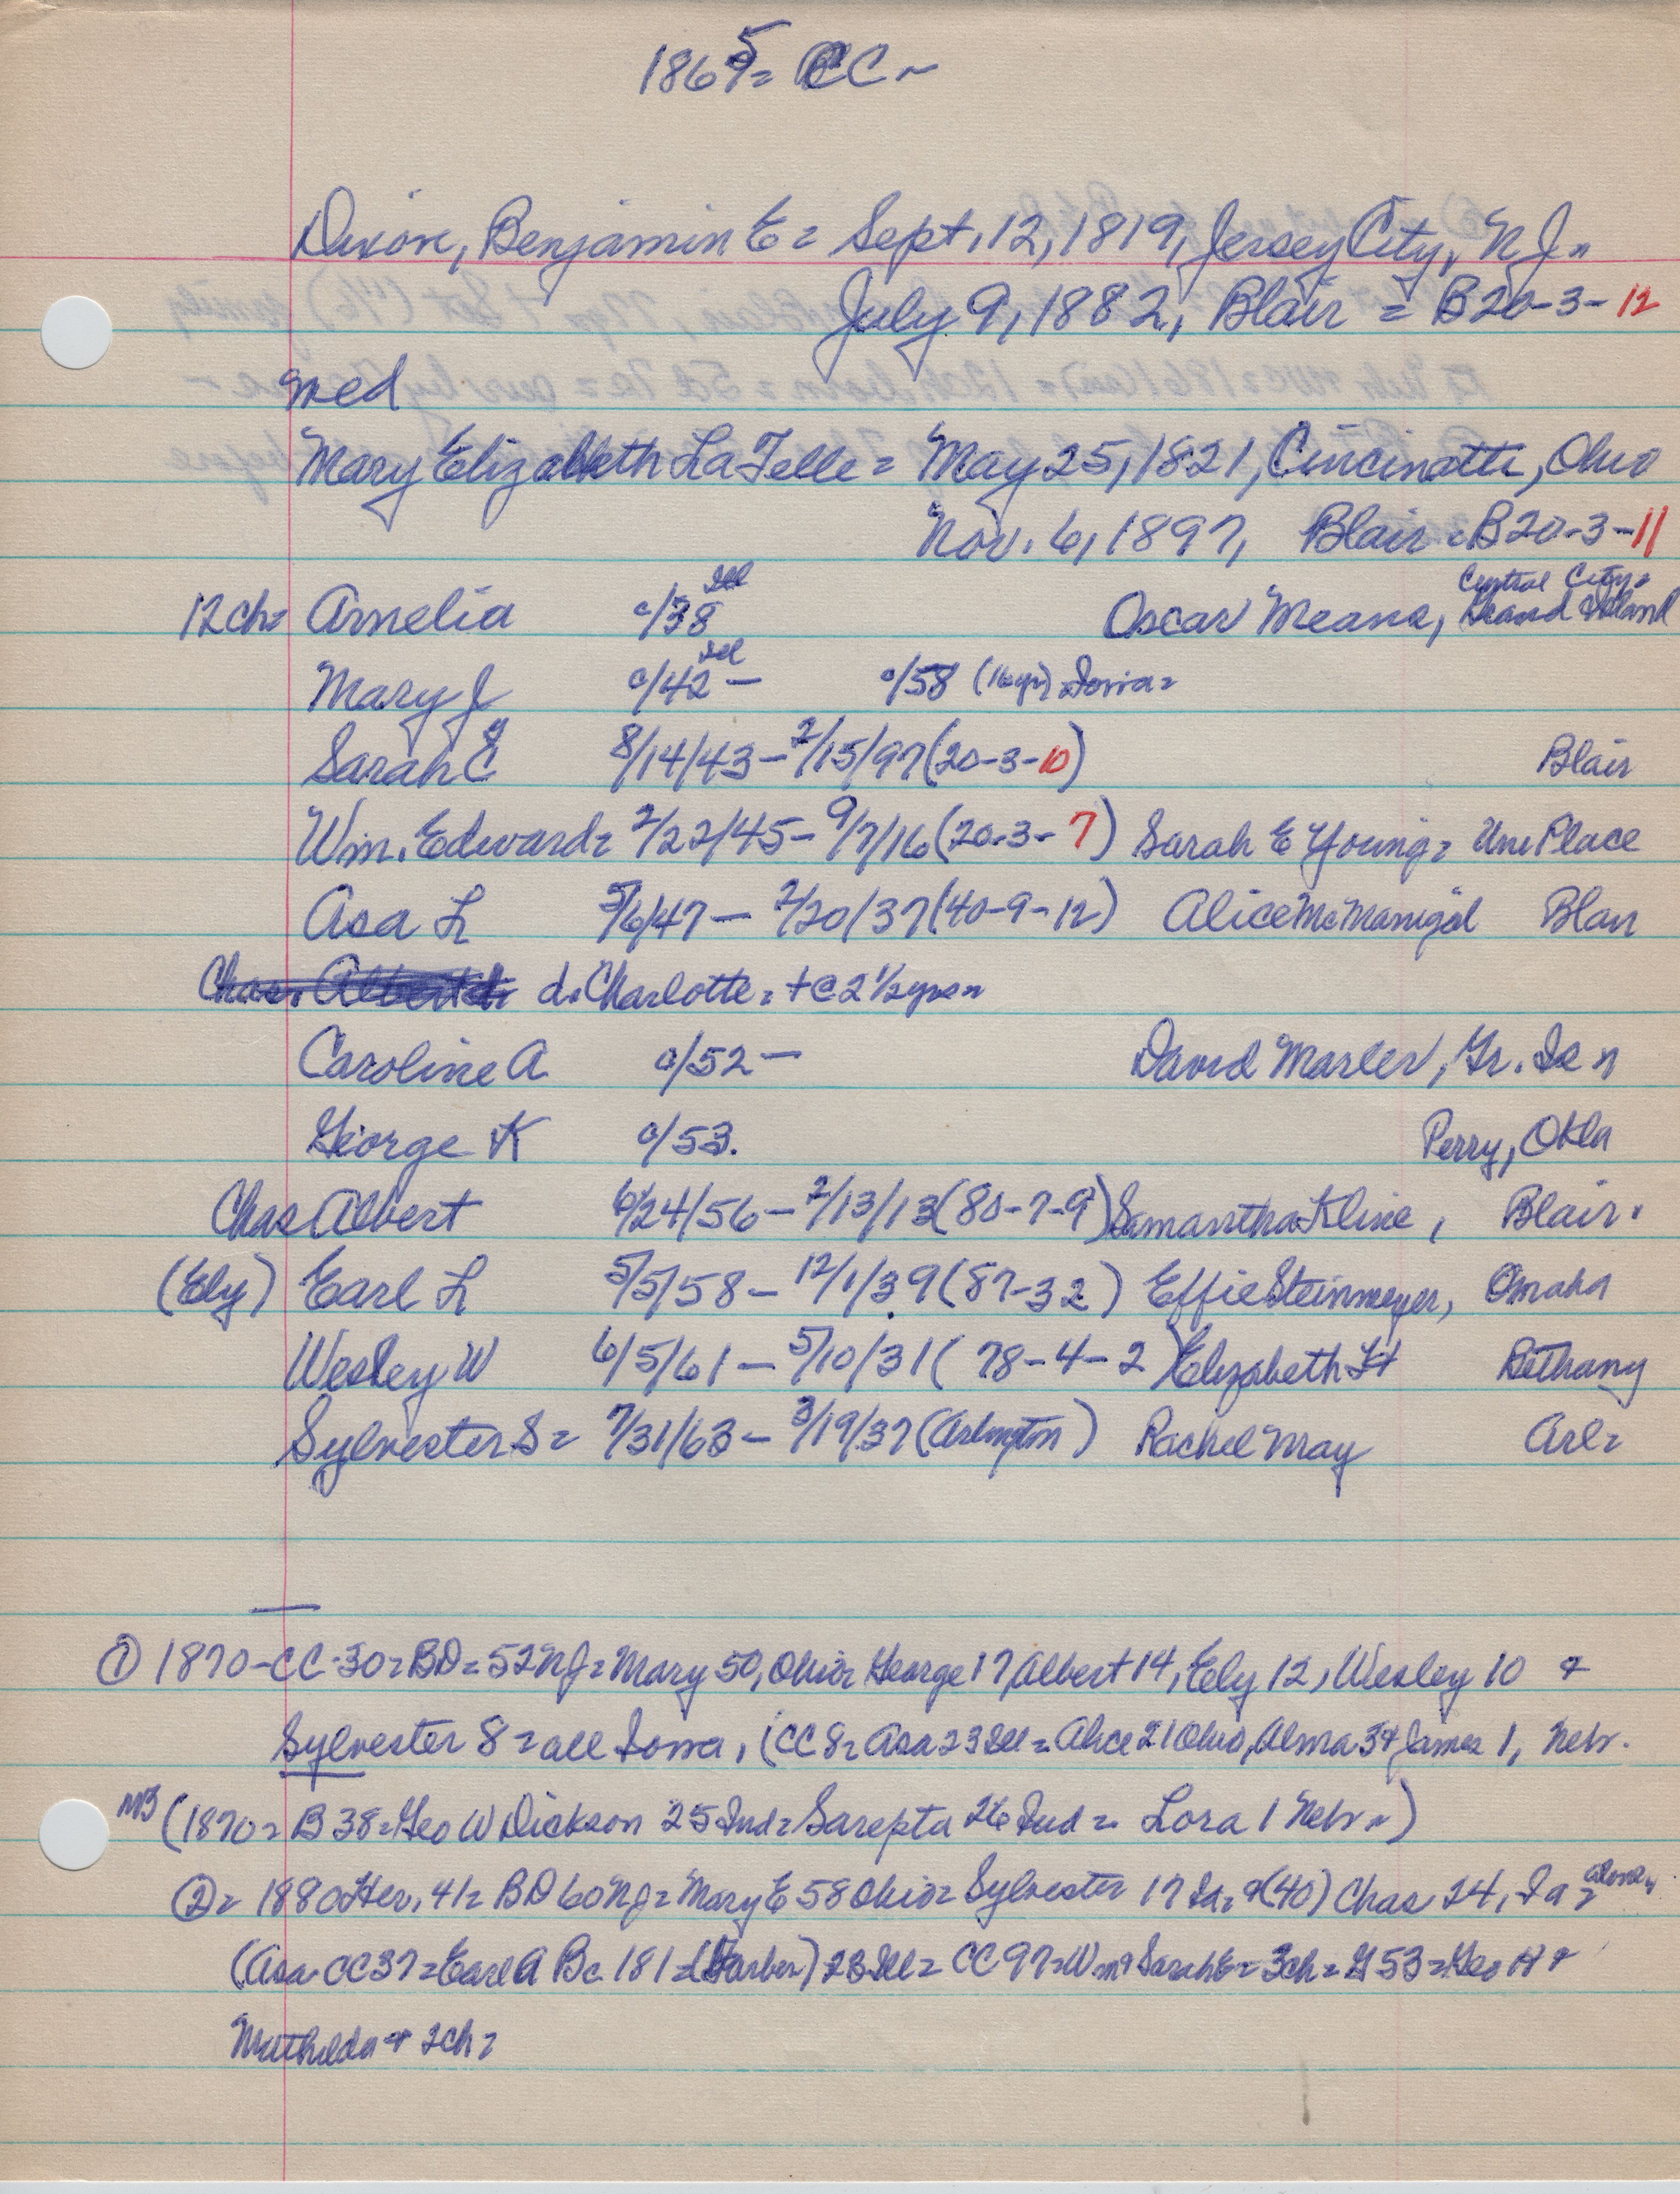 1865= CC~
Dixon, Benjamin E= Sept. 12, 1819, Jersey City, N J=
July 9, 1882, Blair = B20-3-12
med
Mary Elizabeth LaTelle= May 25, 1821, Cincinatti, Ohio
Nov. 6, 1897, Blair = B20-3-11
Central City=
12ch= Amelia c/38 Ill Oscar Means, Grand Island
Mary J c/42 Ill — c/58 (16yr) Iowa=
Sarah E 8/14/43 — 2/15/97 (20-3-10) Blair
Wm. Edward= 2/22/45 — 9/7/16 (20-3-7) Sarah E Young= Une Place
Asa L 5/6/47 — 2/20/37 (40-9-12) Alice McManigal Blair
Chas. Albert d. Charlotte= +@ 2 1/2yrs=
Caroline A c/52 — David Marler, Gr. Is=
George K c/53. Perry, Okla
Chas Albert 6/24/56 — 2/13/13 (80-7-9) Samantha Kline, Blair.
(Ely) Earl L 5/5/58 — 12/1/39 (87-32) Effie Steinmeyer, Omaha
Wesley W 6/5/61 — 5/10/31 (78-4-2) Elizabeth Bethany
Sylvester S= 7/31/63 — 3/19/37 (Arlington) Rachel May Arl=
① 1870-CC-30=BD=52NJ=Mary 50, Ohio= George 17, Albert 14, Ely 12, Wesley 10 &
Sylvester 8=all Iowa, (CC8= Asa 23 Ill= Alice 21 Ohio, Alma 3 & James 1, Nebr.
NB (1870= B38=Geo W Dickson 25 Ind= Sarepta 26 Ind= Lora 1 Nebr=)
②= 1880 Her. 41= BD 60 NJ= Mary E 58 Ohio= Sylvester 17 Ia= & (40) Chas 24, Ia= alone=
(Asa-CC37=Earl A Bc. 181=(Barber) 23 Ill= CC97=Wm & Sarah E=3ch= G53=Geo H &
Mathilda & 2ch=